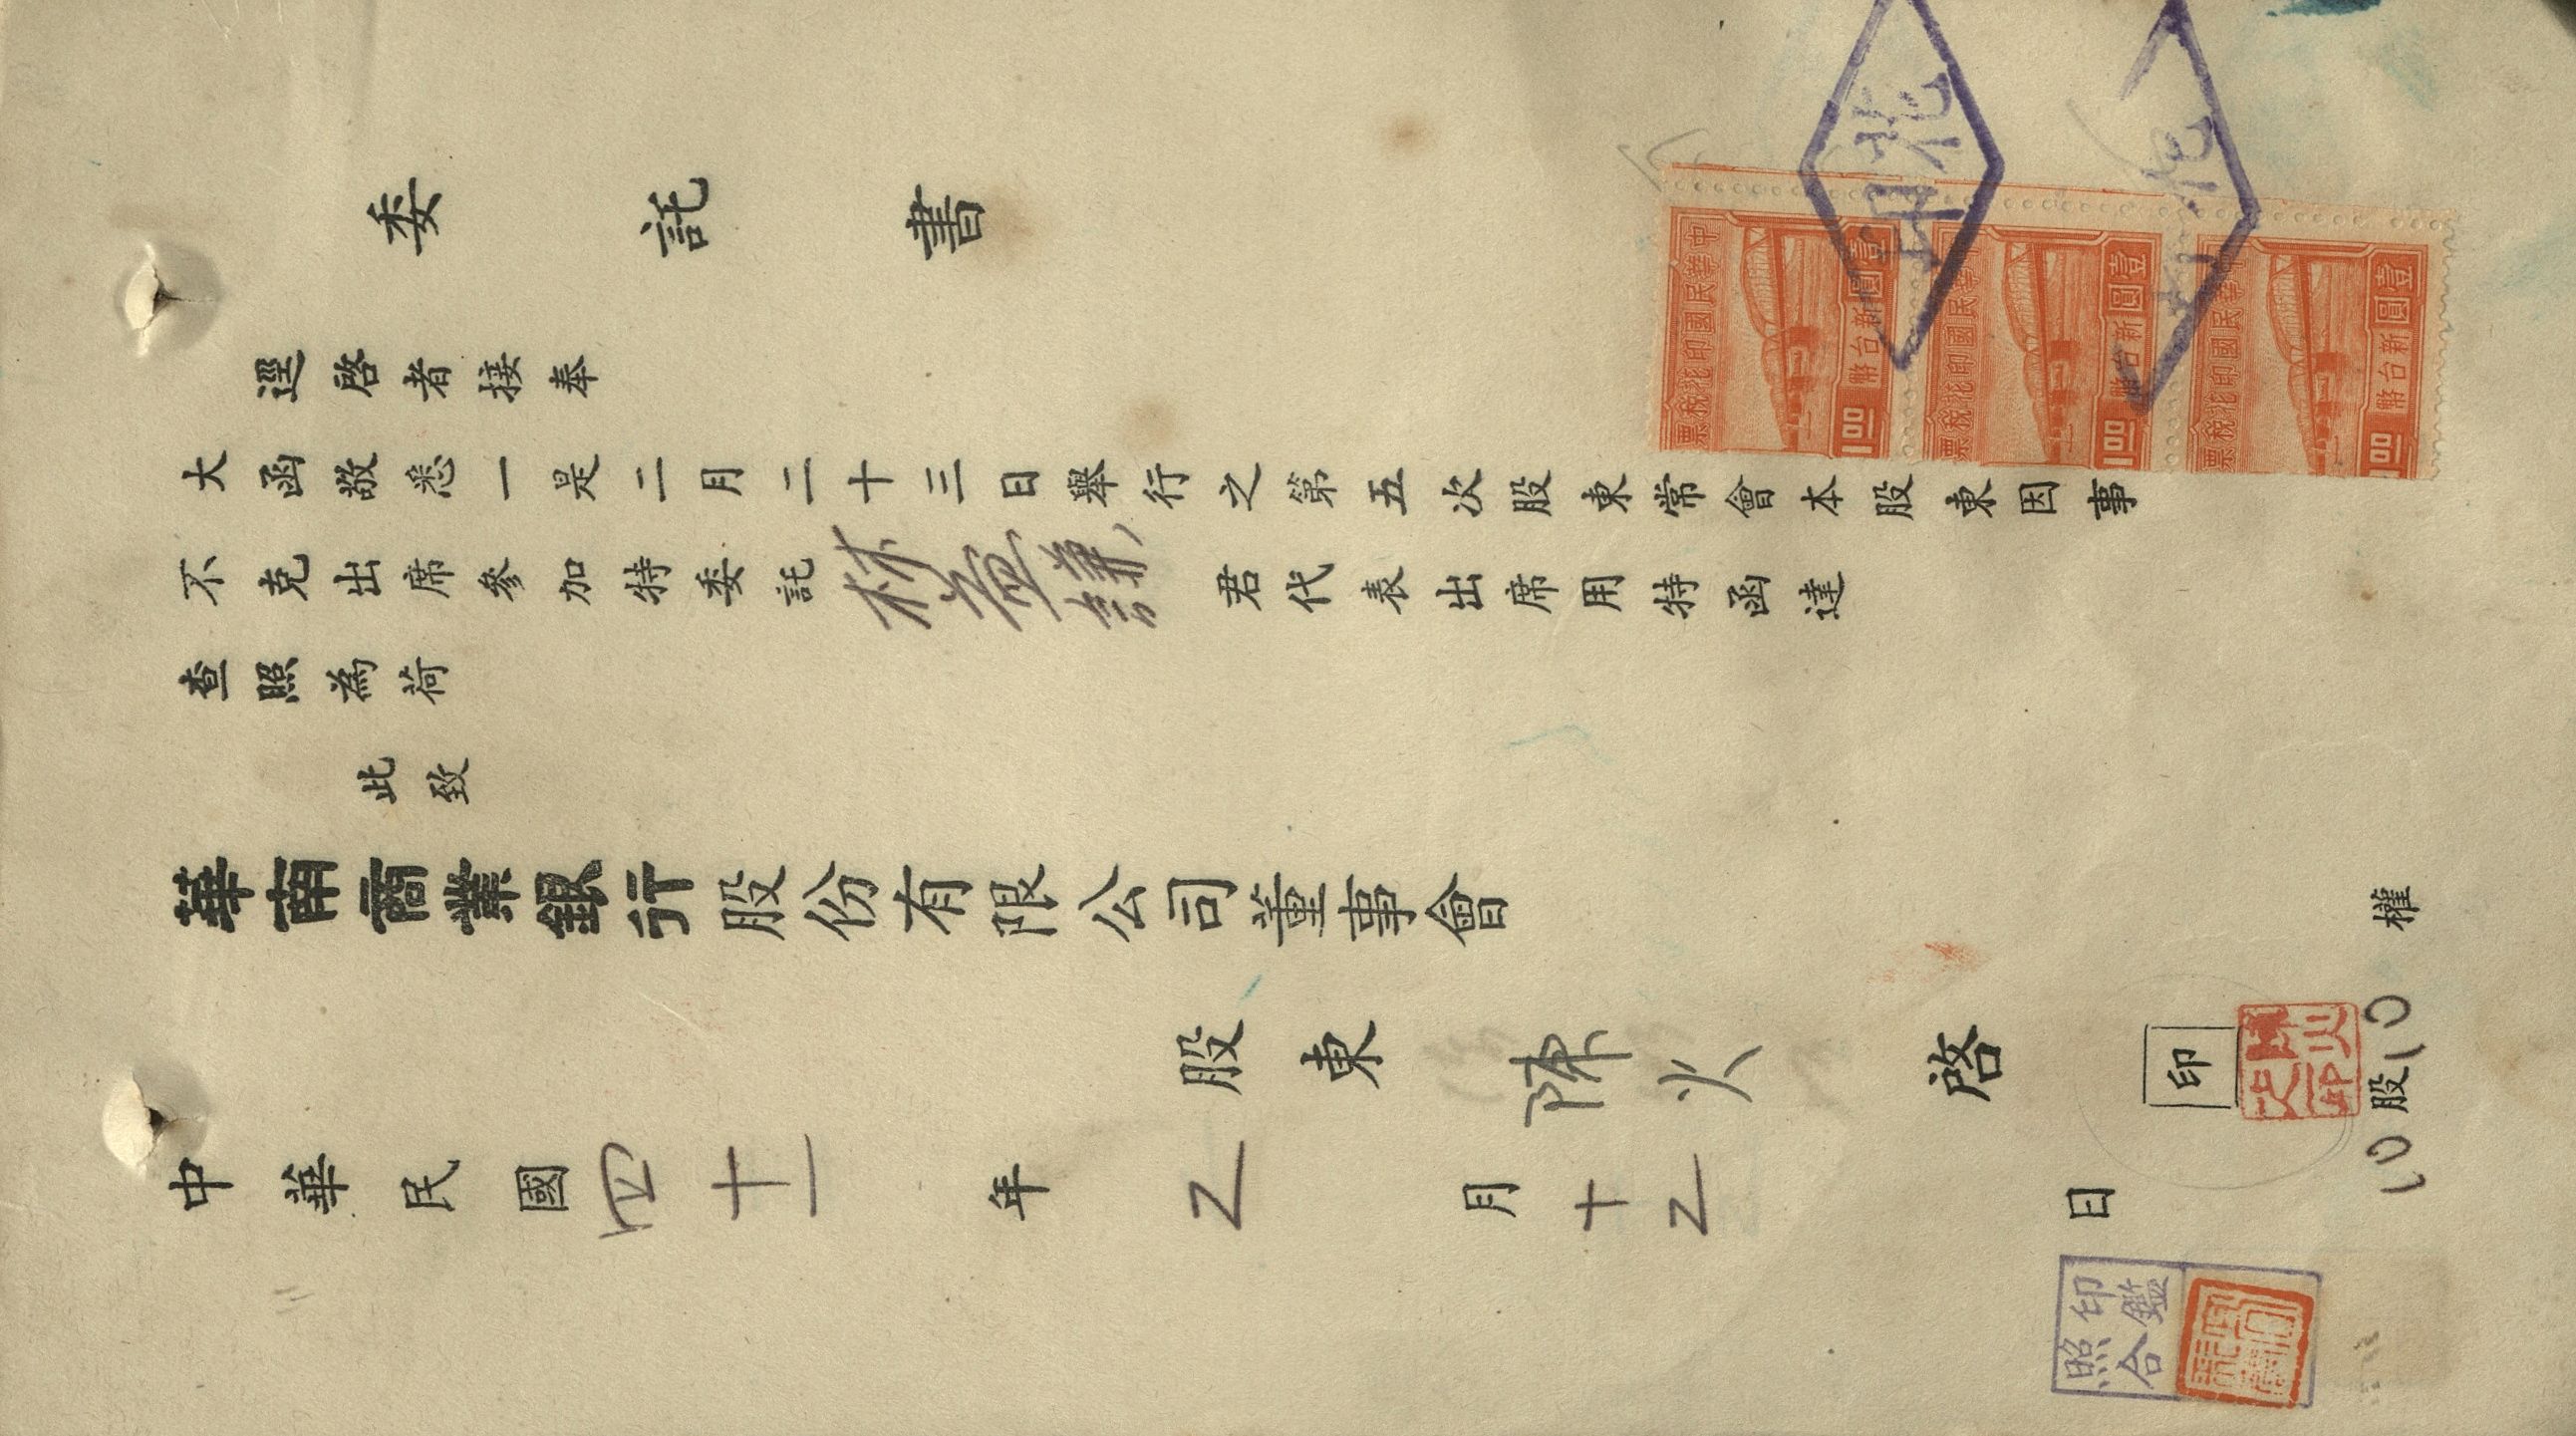 委託書
逕啓者接奉
大函敬悉一是二月二十三日舉行之第五次股東常會本股東因事
不克出席參加特委託林 君代表出席用特函達
查照為荷
此致
華南商業銀行股份有限公司董事會
股東 陳火 啓 印
10股10權
中華民國四十一年乙月十乙日
印鑑
照合
中華民國印花稅票
壹圓
新台幣
1.00
中華民國印花稅票
壹圓
新台幣
1.00
中華民國印花稅票
壹圓
新台幣
1.00